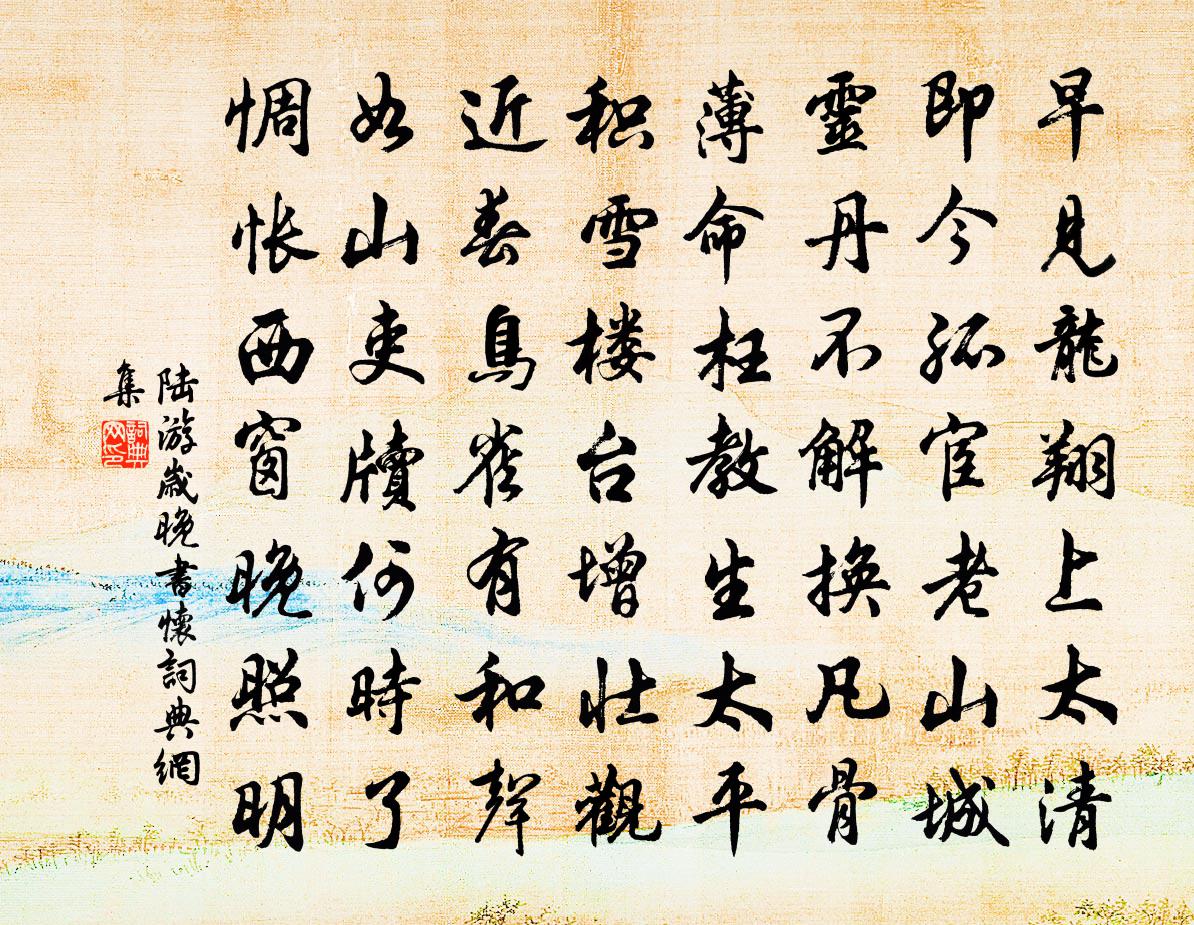 早見龍翔上太清
即今孤宦老山城
靈丹不解換凡骨
薄命枉教生太平
积雪楼台增壮觀
近春鳥雀有和聲
如山吏牘何時了
惆怅西窗晚照明
陆游歲晚書懷詞典網
集
詞典网印